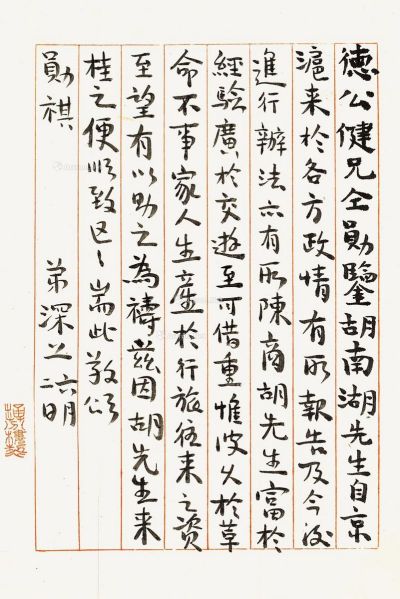 德公健兄仝勛鑒胡南湖先生自京
滬来於各方政情有所報告及今後
進行辦法亦有所陳商胡先生富於
經驗廣於交遊至可借重惟彼久於革
命不事家人生產於行旅往来之资
至望有以助之為禱茲因胡先生来
桂之便順致区〻耑此敬頌
勛祺
弟深上六明